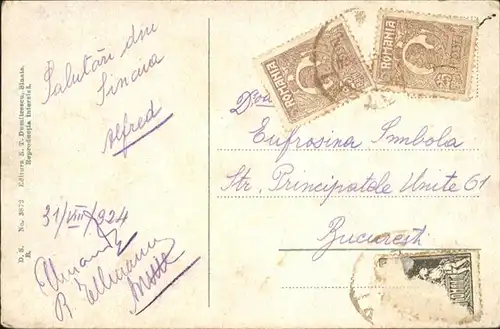 Salutări din
Sinaia
Alfred
31/VIII 1924
R. Ellmann
D. S. No. 3872 Editura N. T. Dumitrescu, Sinaia.
R. Reproducția interzisă.
ROMANIA
ROMANIA
D-oa
Eufrosina Smbola
Str. Principatele Unite 61
București